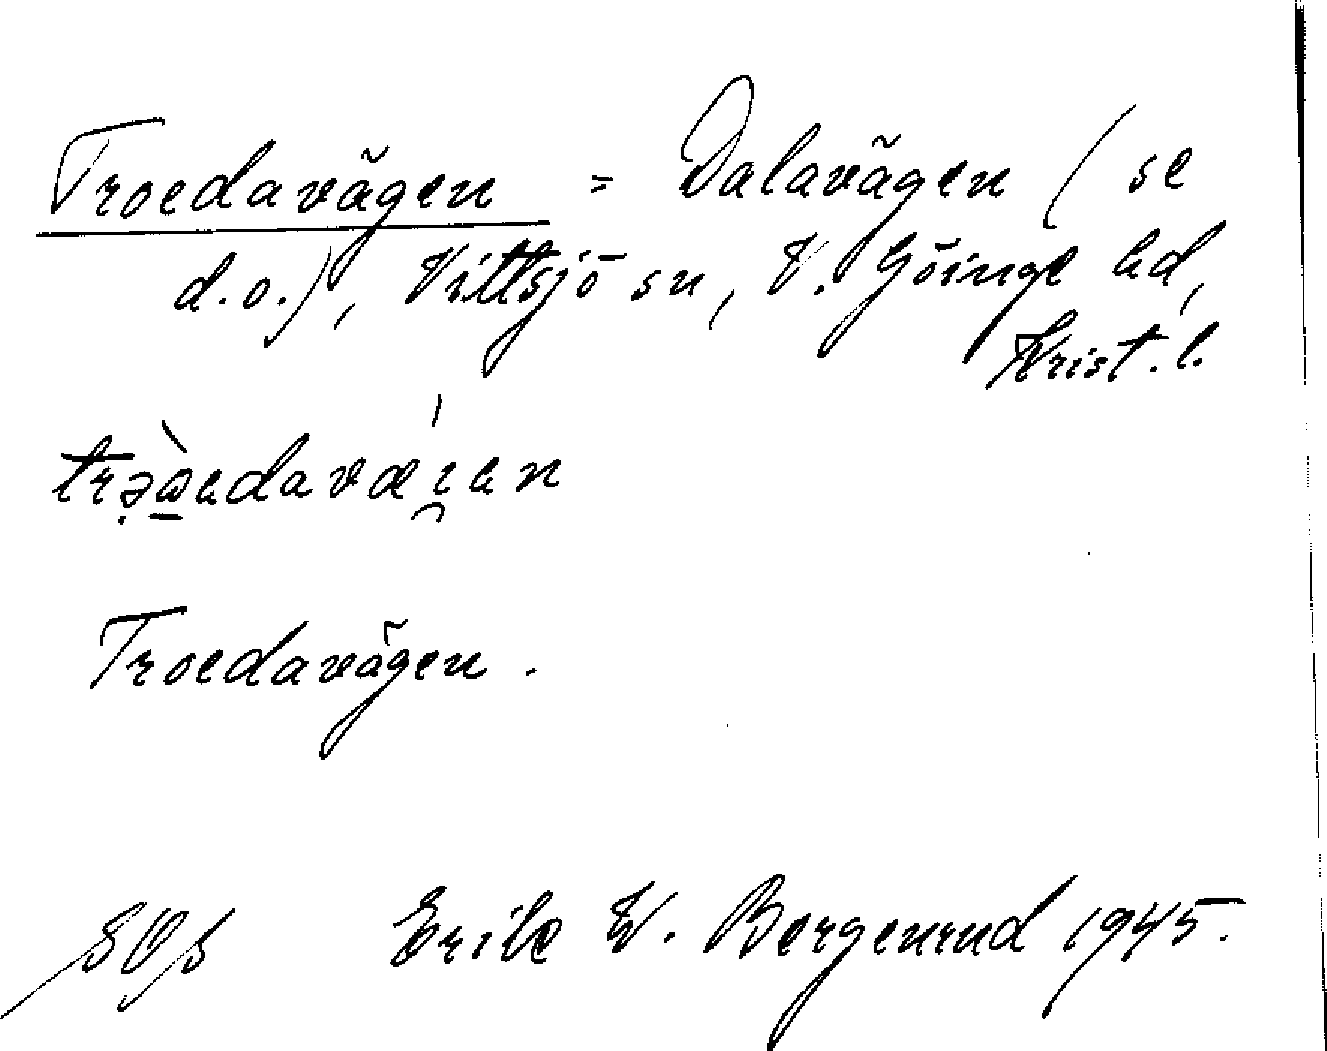 Troedavägen = Dalavägen (se
d.o.), Vittsjö sn, V. Göinge hd,
Krist. l.
Troedavägen.
Erik W. Bergenrud 1945.